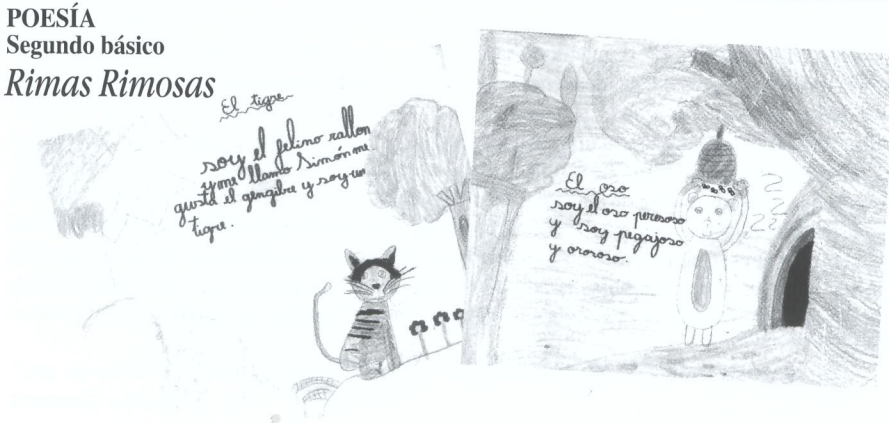 POESÍA
Segundo básico
Rimas Rimosas
El tigre
soy el felino rallon
y me llamo Simón me
gusta el gengibre y soy un
tigre.
El oso
soy el oso peresoso
y soy pegajoso
y ororoso.